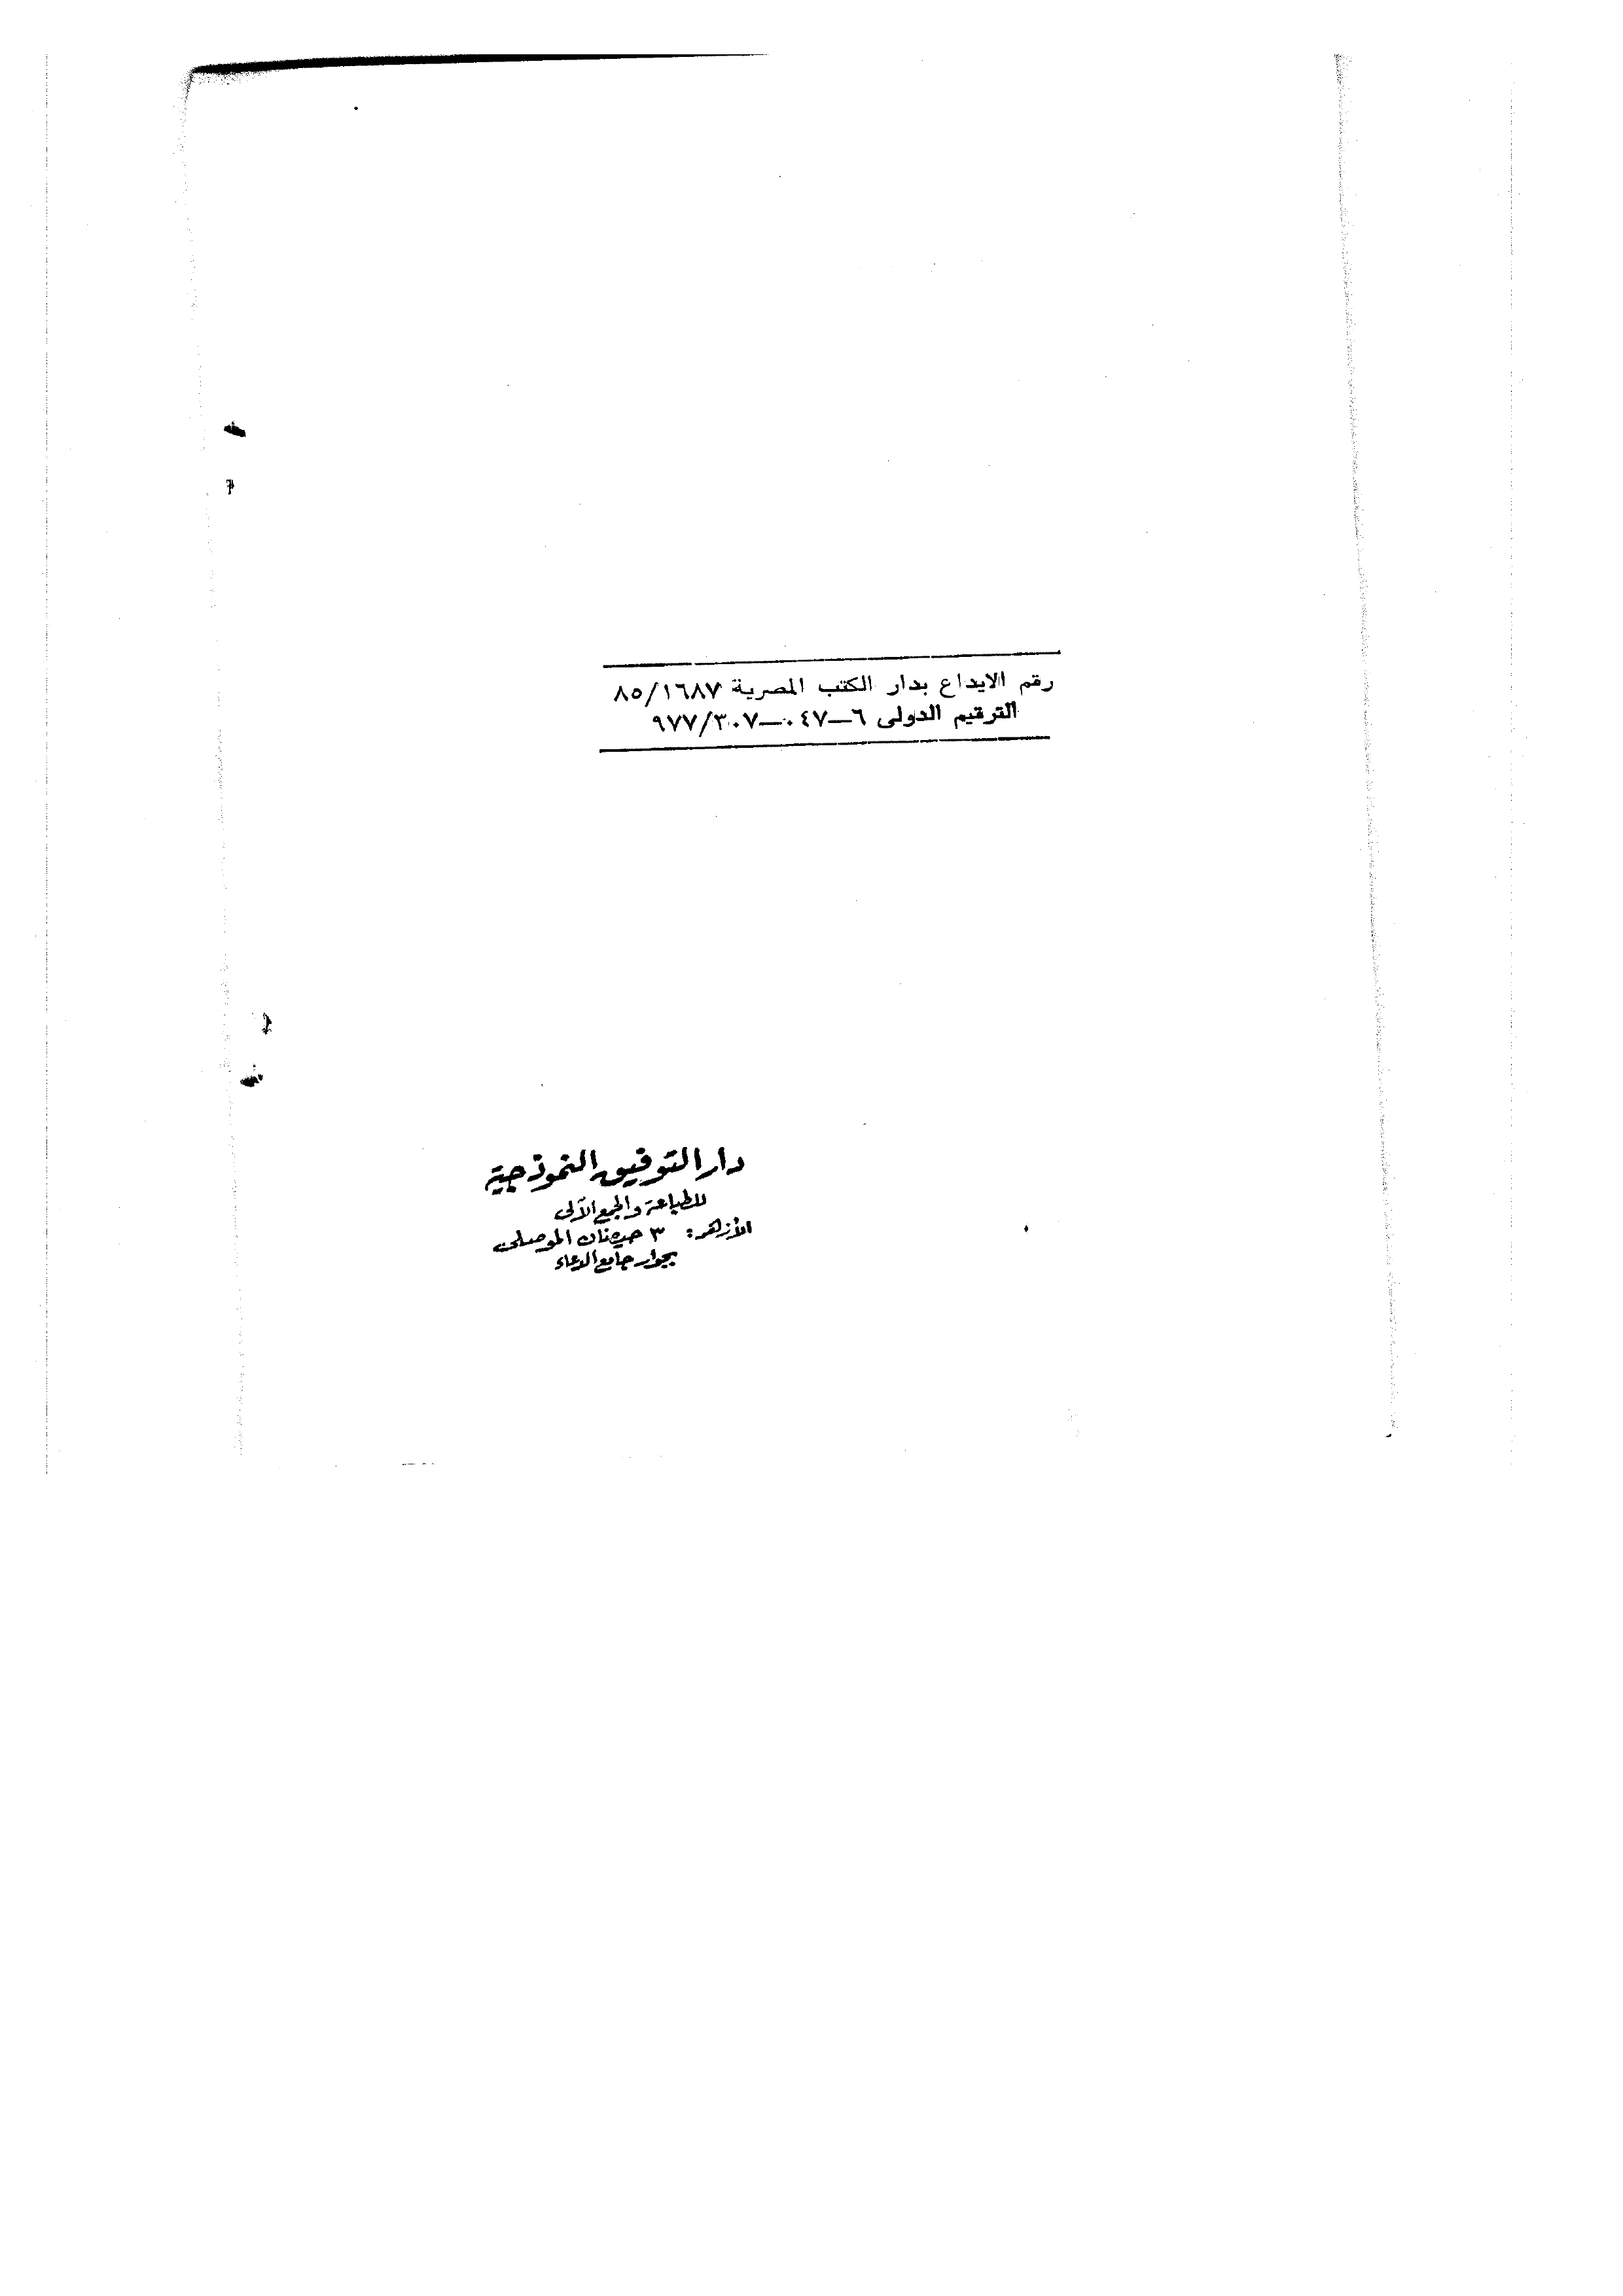 رقم الايداع بدار الكتب المصرية ٨٥/١٦٨٧
الترقيم الدولى ٦—٠٤٧—٩٧٧/٣٠٧
دار التوفيق النموذجية
للطباعة والجمع الآلى
الأزهر: ٣ حيضان الموصلى
بجوار جامع الدعاء